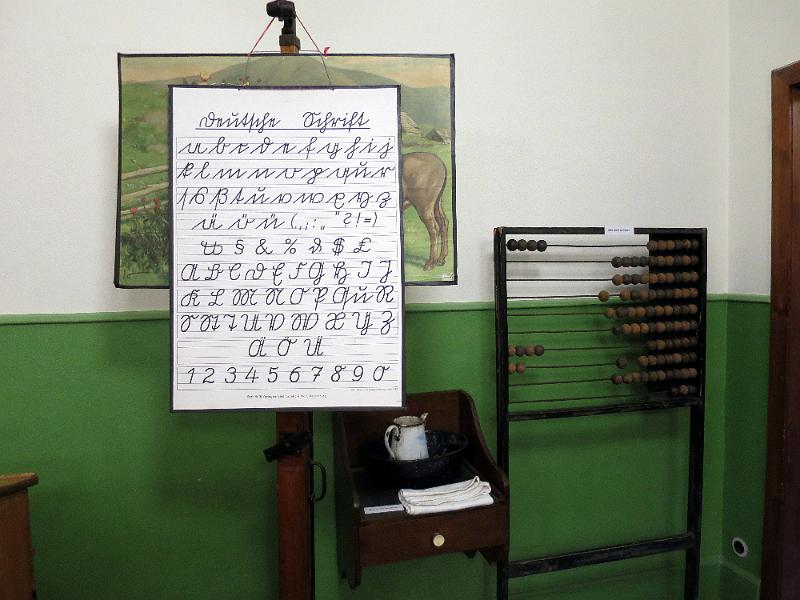 Deutsche Schrift
a b c d e f g h i j
k l m n o p q u r
s ß t u v w x y z
ä ö ü ( , ; : „ " ? ! = )
§ & % $ £
A B C D E F G H I J
K L M N O P Q u R
S St T U V W X Y Z
Ä Ö Ü
1 2 3 4 5 6 7 8 9 0